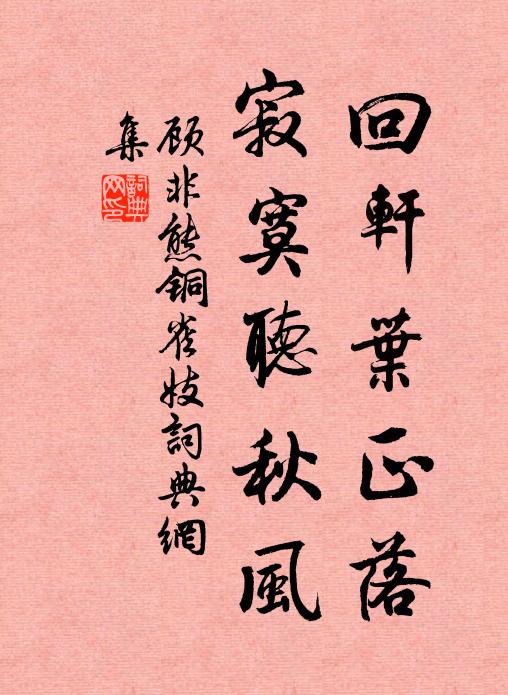 回軒葉正落
寂寞聽秋風
顾非熊铜雀妓詞典網
集
詞典网印